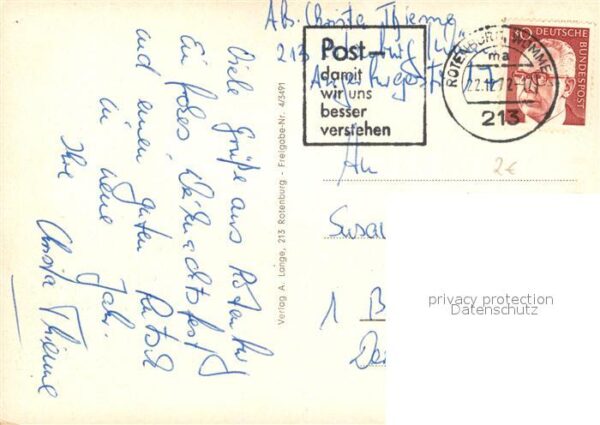 Ab. Christa Thieme
213
Post-
damit
wir uns
besser
verstehen
ROTENBURG WÜMME
ma
22.12.72
213
DEUTSCHE
BUNDESPOST
Viele Grüße aus Rotenburg
Ein frohes Weihnachtsfest
und einen guten Rutsch
in neue Jahr.
Ihre Christa Thieme
Verlag A. Lange, 213 Rotenburg - Freigabe-Nr. 4/3491
2€
An
Susa
1 B
privacy protection
Datenschutz